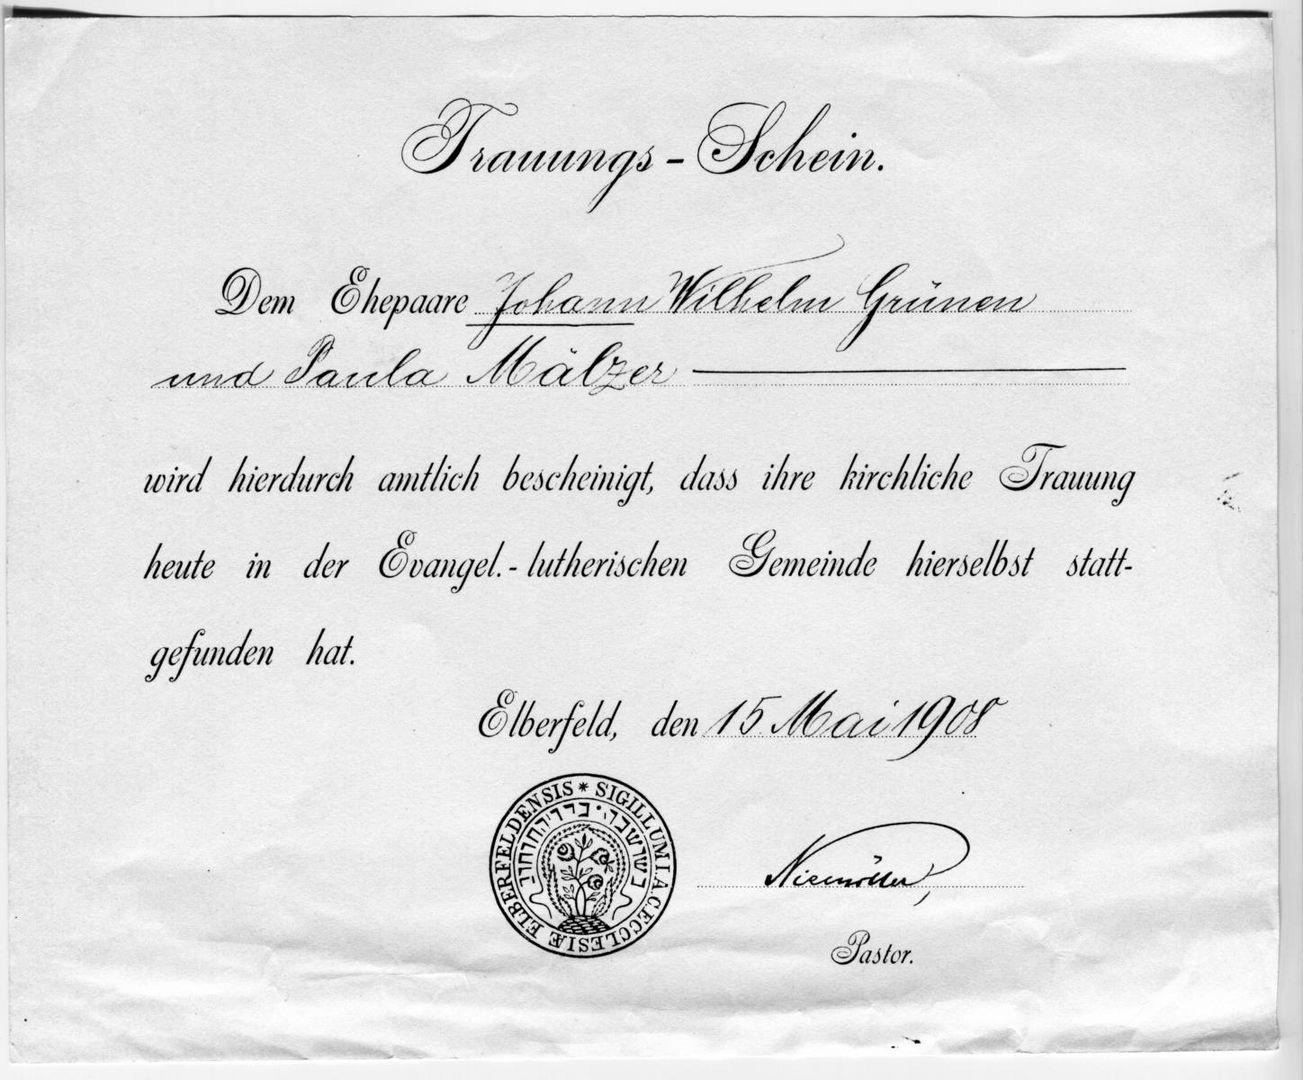 Trauungs-Schein.
Dem Ehepaare Johann Wilhelm Grünen
und Paula Mälzer
wird hierdurch amtlich bescheinigt, dass ihre kirchliche Trauung
heute in der Evangel.-lutherischen Gemeinde hierselbst statt-
gefunden hat.
Elberfeld, den 15. Mai 1908
SIGILLUM I.A.C. ECCLESIÆ ELBERFELDENSIS *
Niemöller,
Pastor.